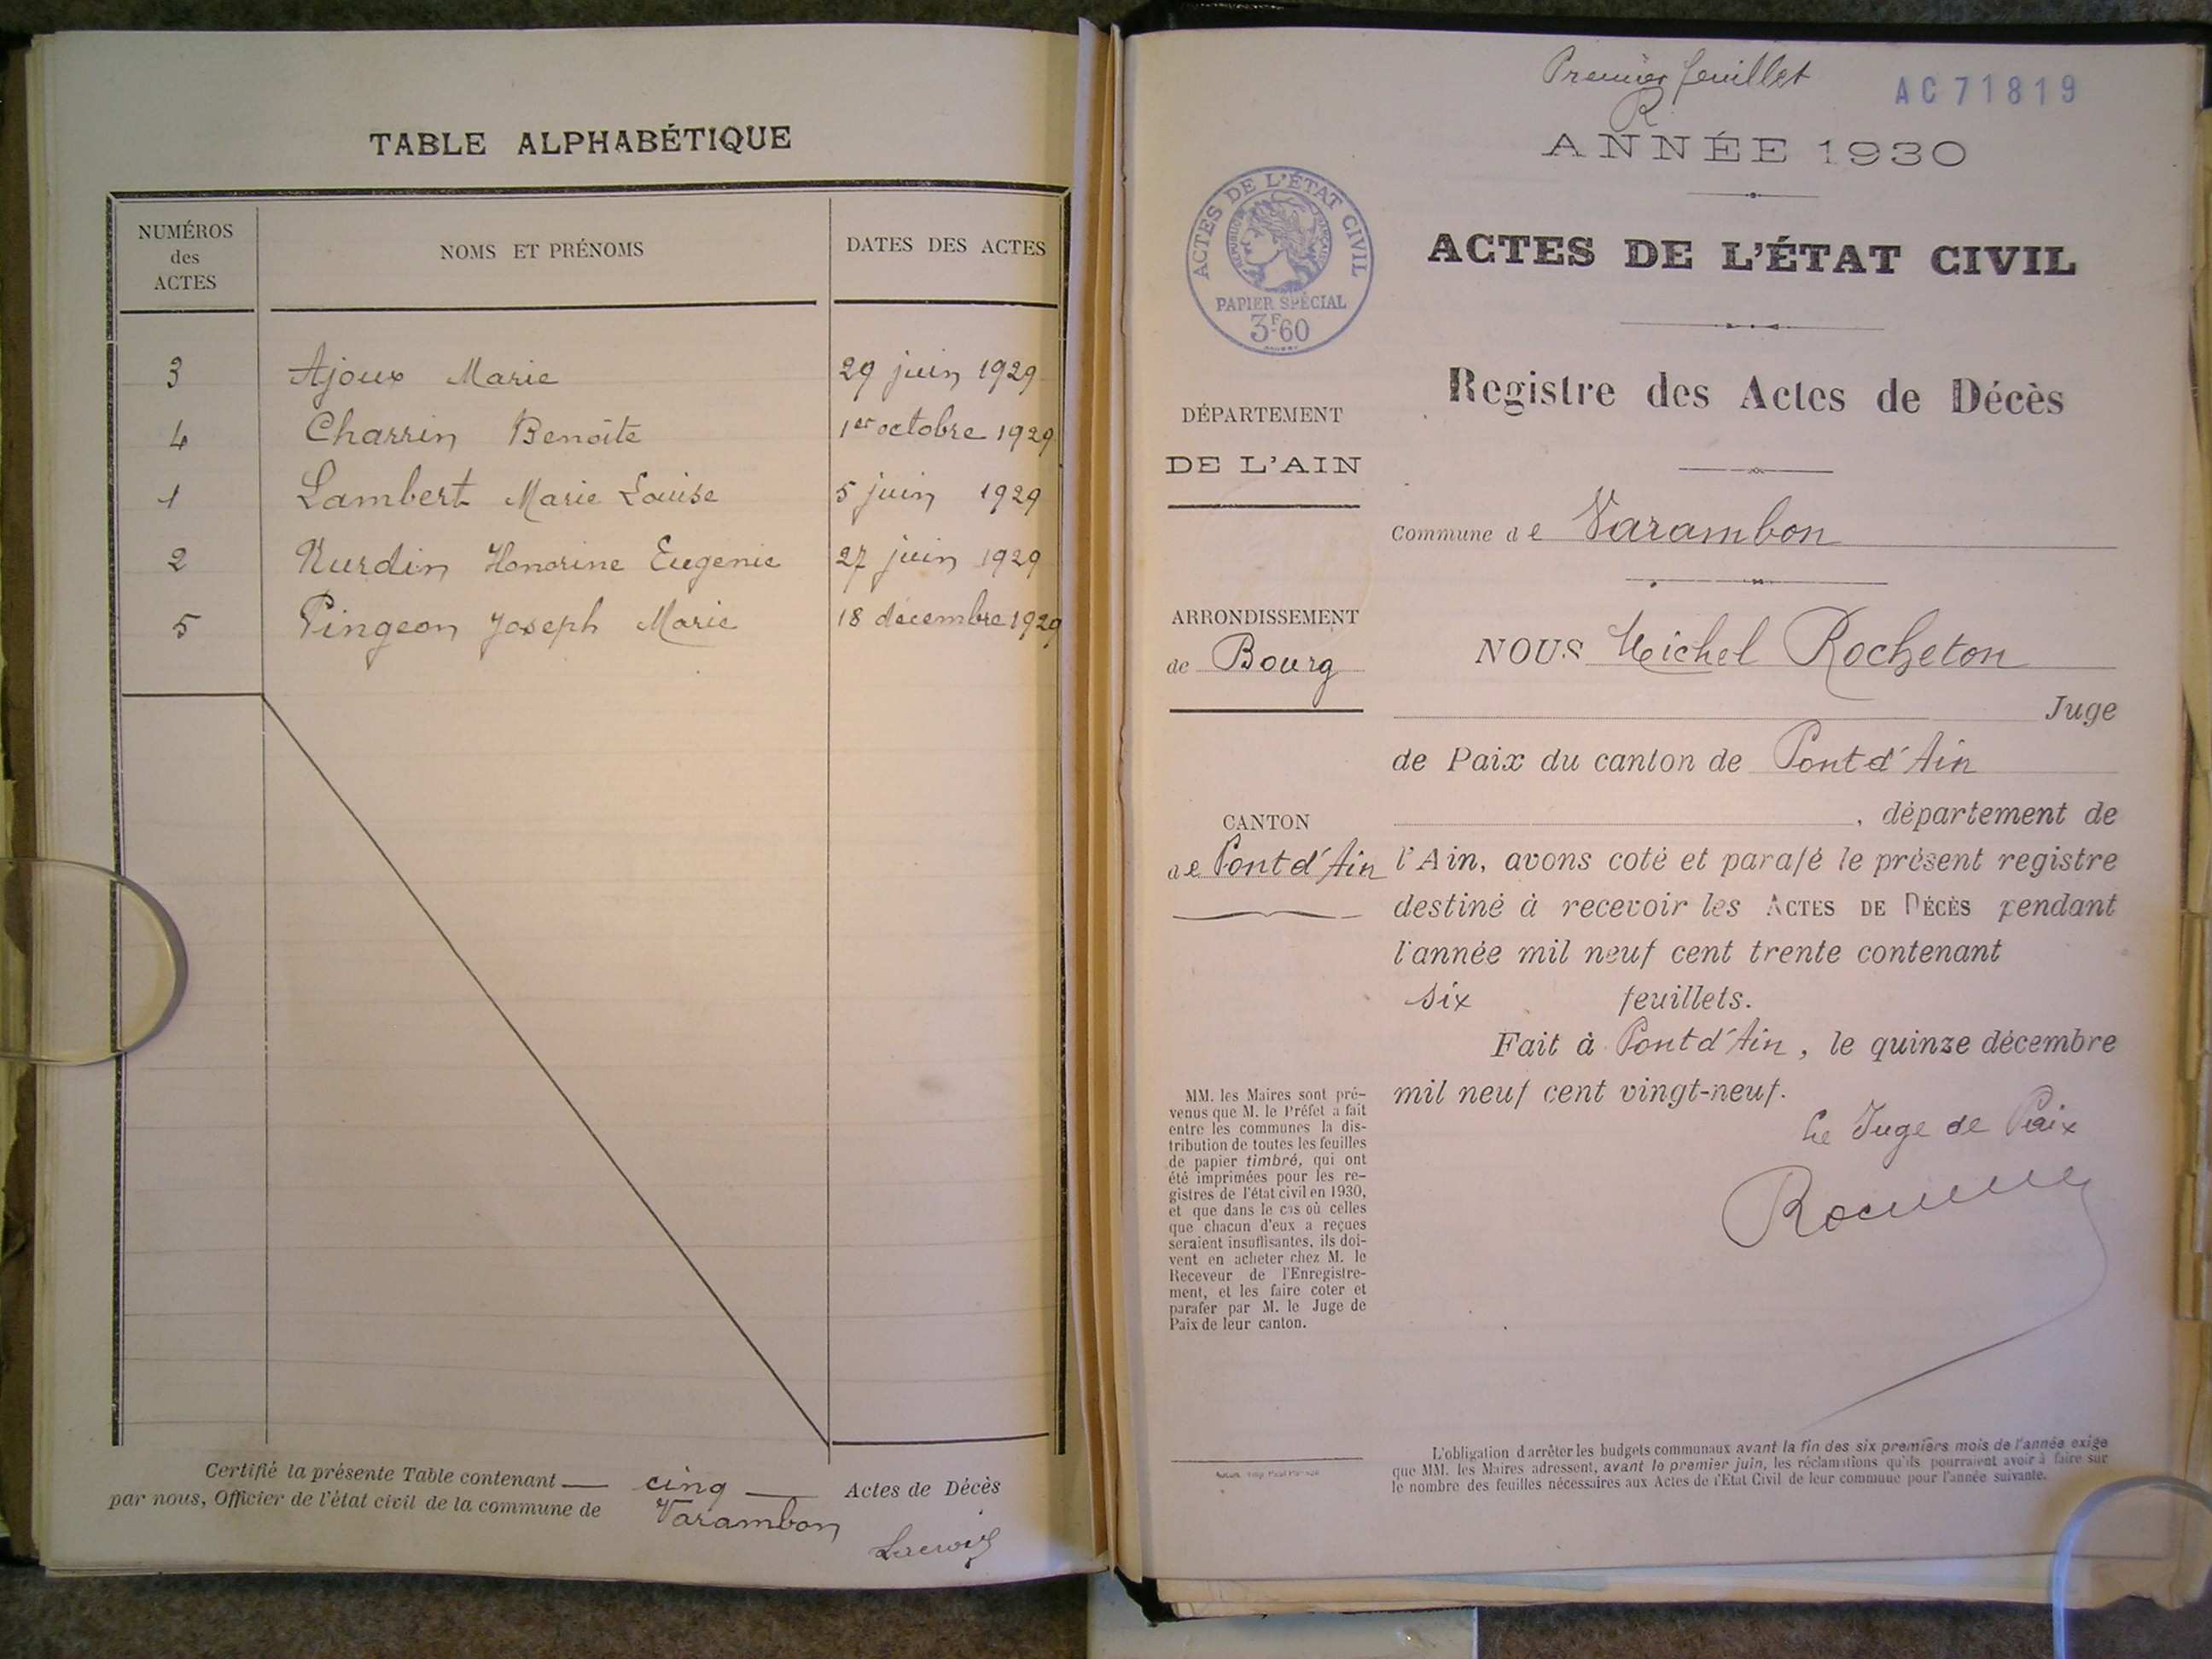 TABLE ALPHABÉTIQUE
NUMÉROS
des
ACTES
NOMS ET PRÉNOMS
DATES DES ACTES
3 Ajoux Marie 29 juin 1929
4 Charrin Benoîte 1er octobre 1929
1 Lambert Marie Louise 5 juin 1929
2 Nurdin Honorine Eugenie 27 juin 1929
5 Pingeon Joseph Marie 18 decembre 1929
Certifié la présente Table contenant — cinq — Actes de Décès
par nous, Officier de l'état civil de la commune de Varambon
Premier feuillet
R
AC 71819
ANNÉE 1930
ACTES DE L'ÉTAT CIVIL
RÉPUBLIQUE FRANÇAISE
PAPIER SPÉCIAL
3F60
ACTES DE L'ÉTAT CIVIL
Registre des Actes de Décès
DÉPARTEMENT
DE L'AIN
Commune de Varambon
ARRONDISSEMENT
de Bourg
NOUS Michel Rocheton
Juge
de Paix du canton de Pont d'Ain
, département de
CANTON
de Pont d'Ain
l'Ain, avons coté et parafé le présent registre
destiné à recevoir les ACTES DE DÉCÈS pendant
l'année mil neuf cent trente contenant
six feuillets.
Fait à Pont d'Ain, le quinze décembre
mil neuf cent vingt-neuf.
Le Juge de Paix
MM. les Maires sont pré-
venus que M. le Préfet a fait
entre les communes la dis-
tribution de toutes les feuilles
de papier timbré, qui ont
été imprimées pour les re-
gistres de l'état civil en 1930,
et que dans le cas où celles
que chacun d'eux a reçues
seraient insuffisantes, ils doi-
vent en acheter chez M. le
Receveur de l'Enregistre-
ment, et les faire coter et
parafer par M. le Juge de
Paix de leur canton.
L'obligation d'arrêter les budgets communaux avant la fin des six premiers mois de l'année exige
que MM. les Maires adressent, avant le premier juin, les réclamations qu'ils pourraient avoir à faire sur
le nombre des feuilles nécessaires aux Actes de l'Etat Civil de leur commune pour l'année suivante.